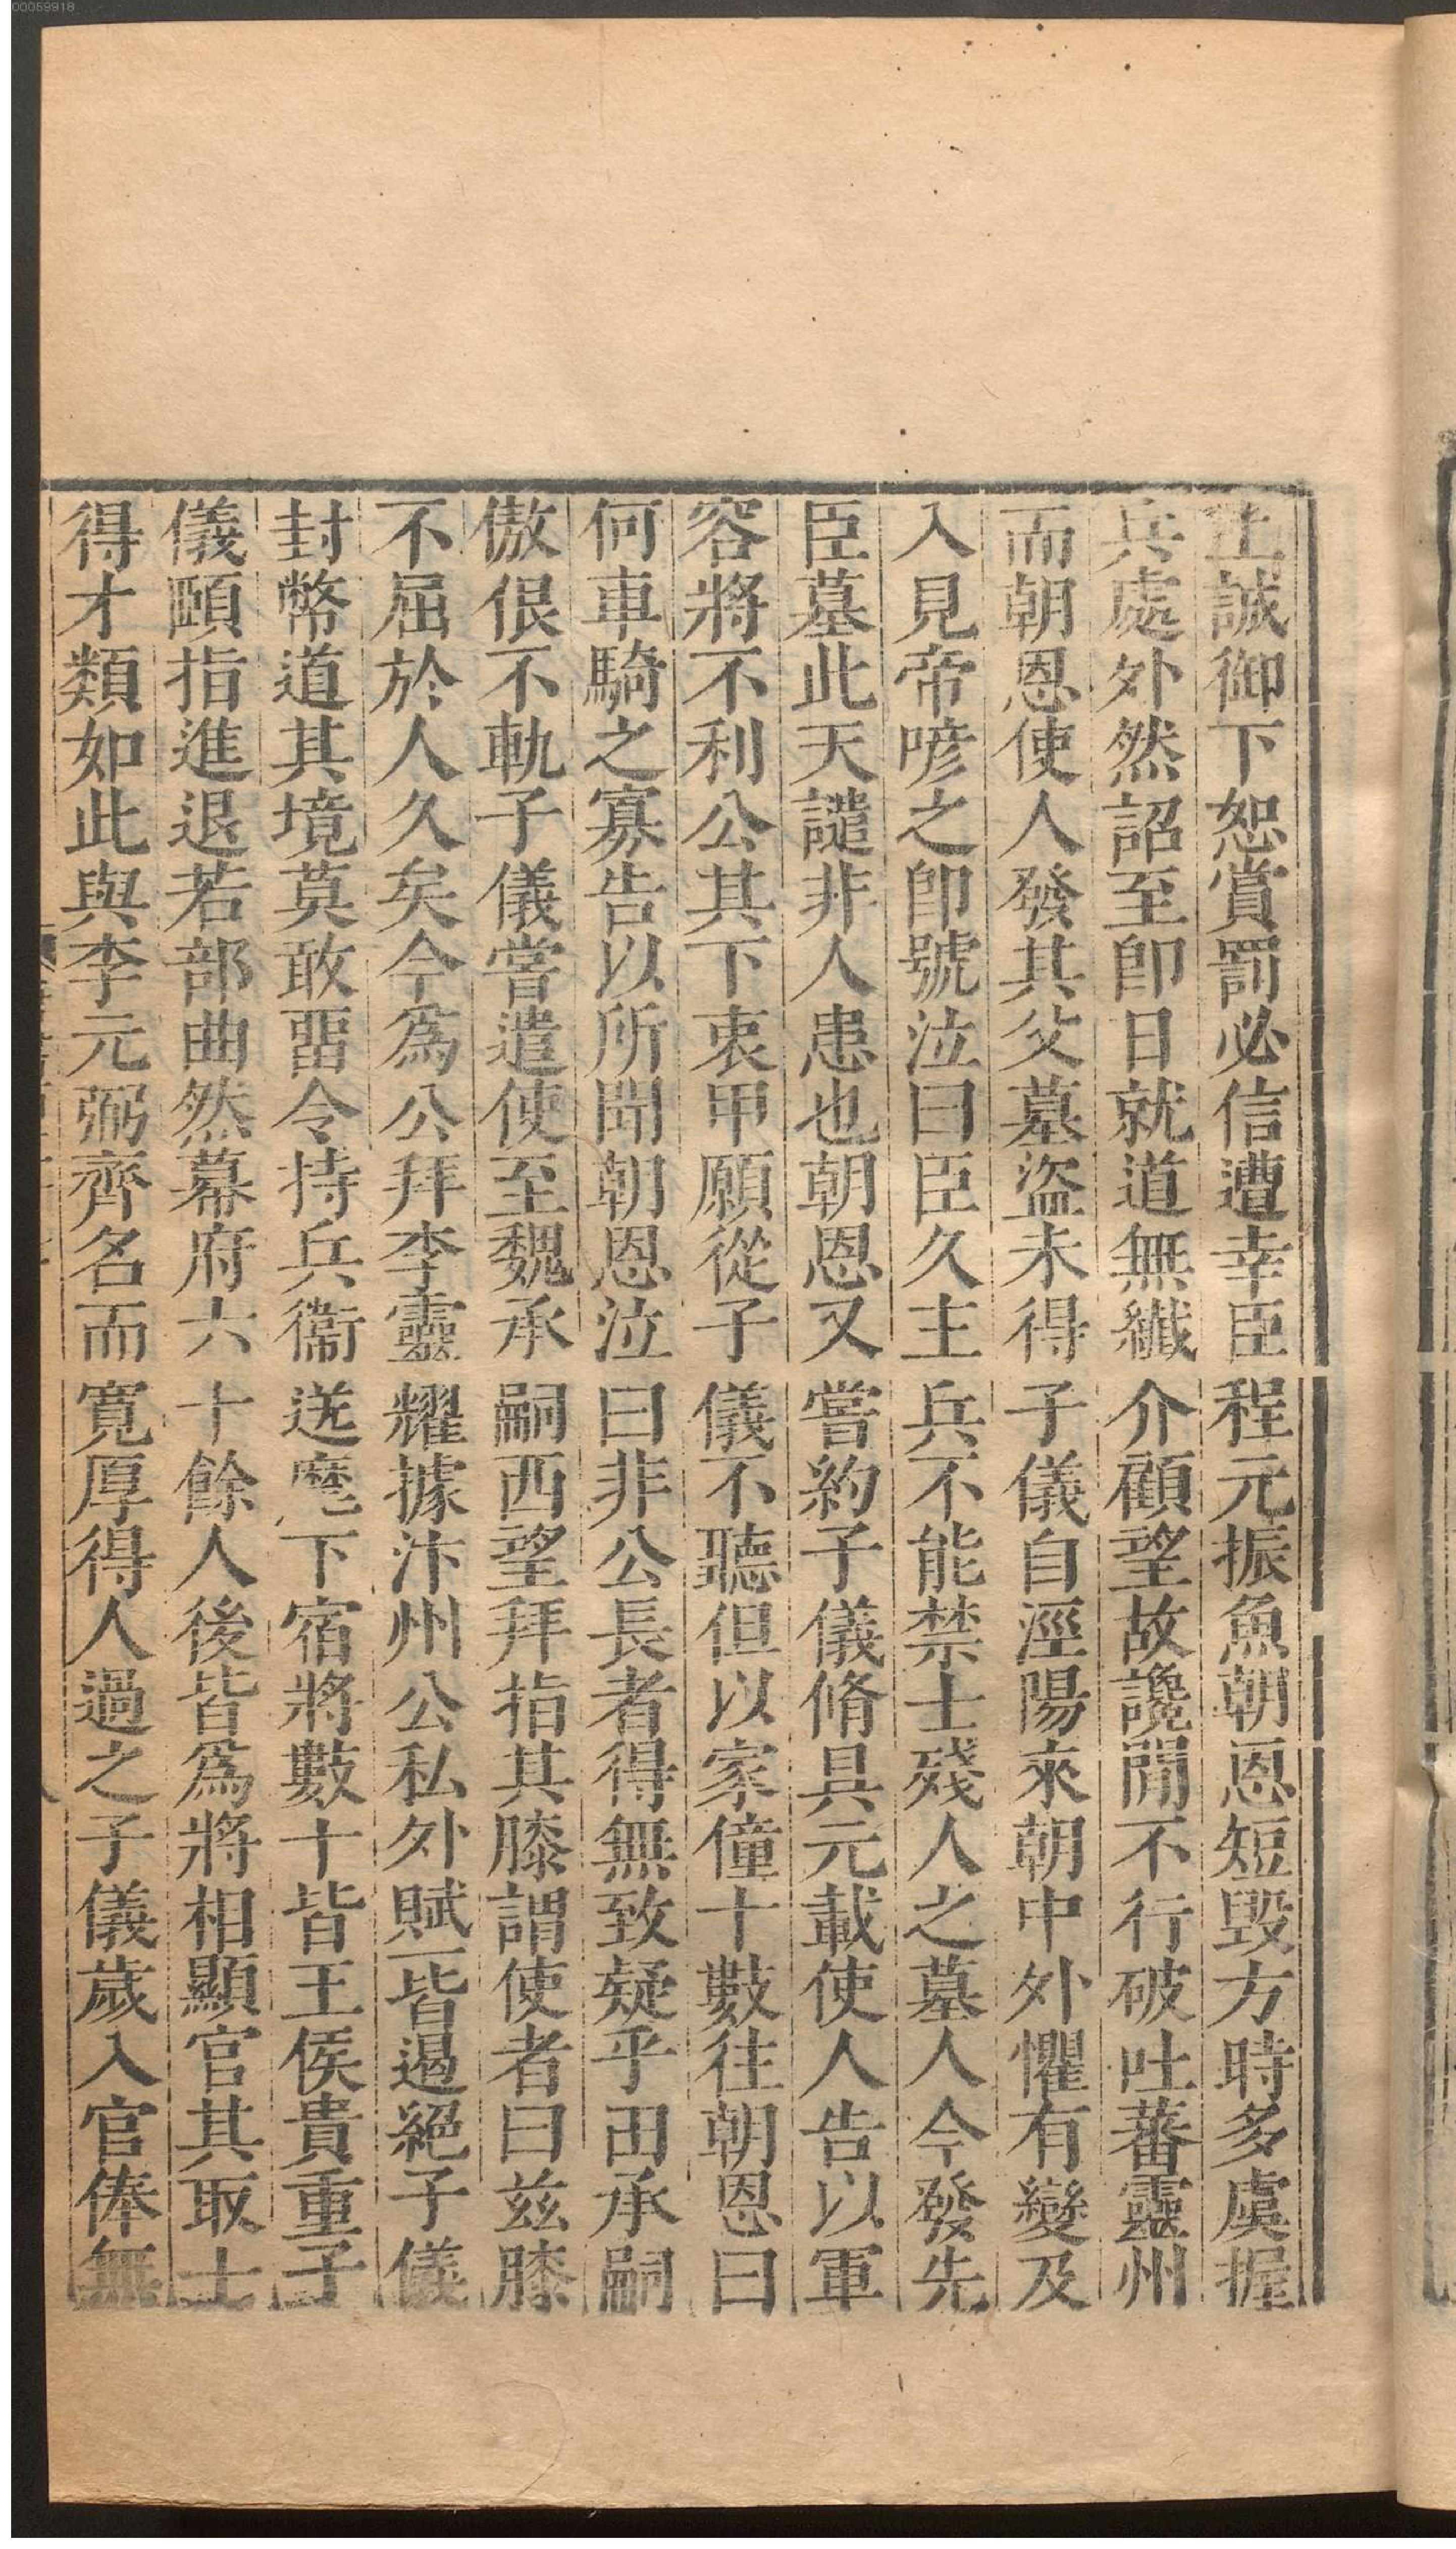 00059918
上誠御下恕賞罰必信遭幸臣程元振魚朝恩短毀方時多虞握
兵處外然詔至卽日就道無纖介顧望故讒閒不行破吐蕃靈州
而朝恩使人發其父墓盜未得子儀自涇陽來朝中外懼有變及
入見帝唁之卽號泣曰臣久主兵不能禁士殘人之墓人今發先
臣墓此天譴非人患也朝恩又嘗約子儀脩具元載使人告以軍
容將不利公其下衷甲願從子儀不聽但以家僮十數往朝恩曰
何車騎之寡告以所聞朝恩泣曰非公長者得無致疑乎田承嗣
傲佷不軌子儀嘗遣使至魏承嗣西望拜指其膝謂使者曰茲膝
不屈於人久矣今爲公拜李靈耀據汴州公私外賦一皆遏絕子儀
封幣道其境莫敢畱令持兵衞送麾下宿將數十皆王侯貴重子
儀頤指進退若部曲然幕府六十餘人後皆爲將相顯官其取士
得才類如此與李元弼齊名而寬厚得人過之子儀歲入官俸無